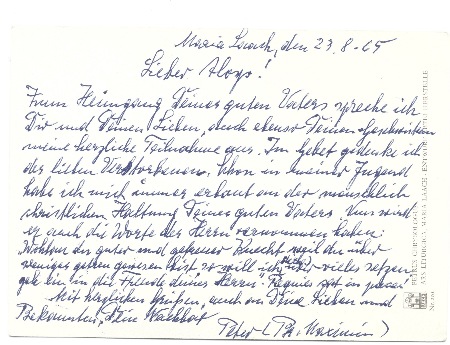 Maria Laach, den 23.8-65
Lieber Aloys!
Zum Heimgang Deines guten Vaters spreche ich
Dir und Deinen Lieben, auch ebenso Deinen Geschwistern
meine herzliche Teilnahme aus. Im Gebet gedenke ich
des lieben Verstorbenen. Schon in meiner Jugend
habe ich mich immer erbaut an der menschlich
christlichen Haltung Deines guten Vaters. Nun wird
er auch die Worte des Herrn vernommen haben:
Wohlan du guter und getreuer Knecht weil du über
weniges getreu gewesen bist so will ich dich über vieles setzen
geh ein in die Freude deines Herrn. Requiescat in pace!
Mit herzlichen Grüßen, auch an Deine Lieben und
Bekannten, Dein Nachbar
Pater (Th. Maximin)
ARS LITURGICA MARIA LAACH